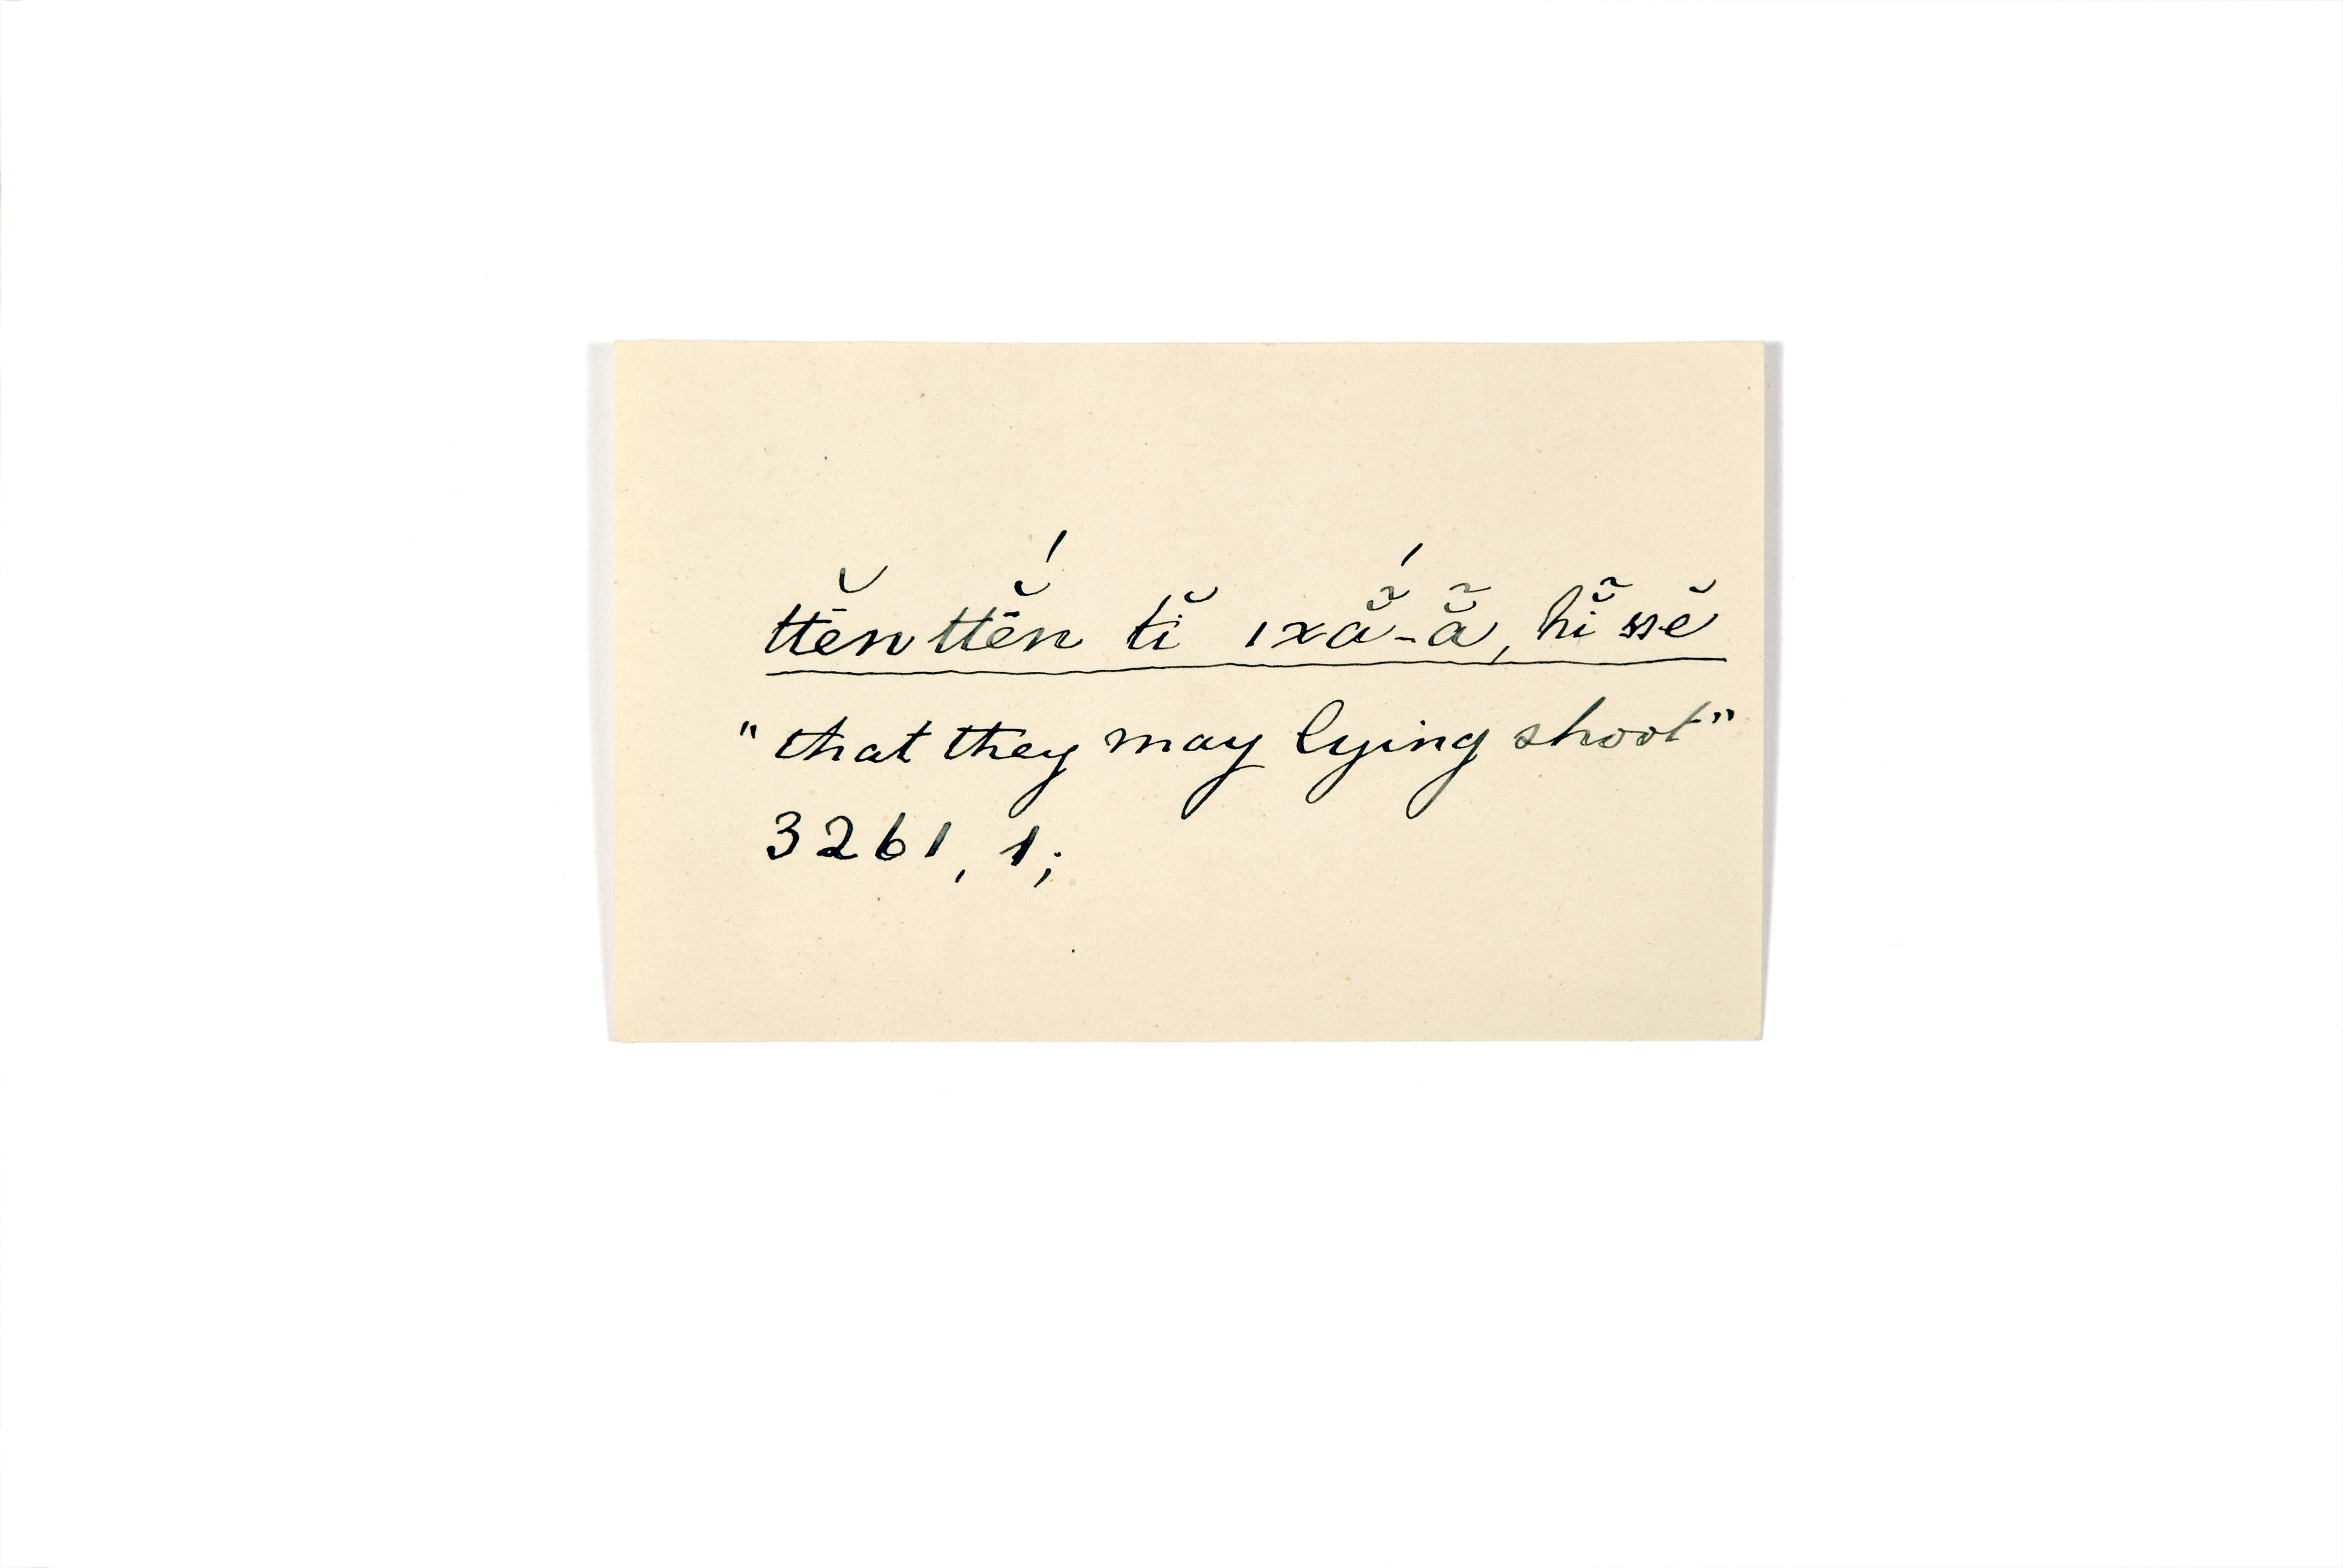 ttĕ̄nttĕ̄́n tĭ ıxẵ́-ẵ, hĭ̃ ssĕ
"that they may lying shoot"
3261, 1;